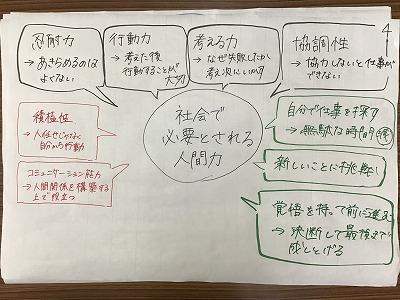 4
忍耐力
→あきらめるのは
よくない
行動力
→考えた後
行動することが
大切
考える力
→なぜ失敗したか
考え次にいかす
協調性
→協力しないと仕事が
できない
社会で
必要とされる
人間力
積極性
→人任せじゃなく
自分から行動
コミュニケーション能力
→人間関係を構築する
上で役立つ
自分で仕事を探す
→無駄な時間
新しいことに挑戦!
覚悟を持って前に進む
→決断して最後まで
成しとげる